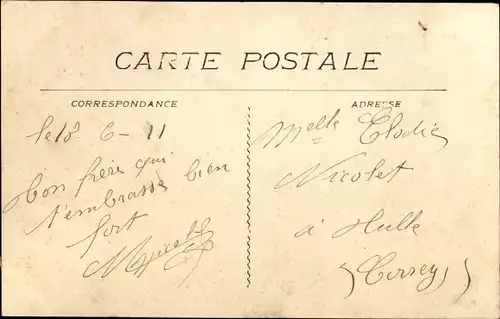 CARTE POSTALE
CORRESPONDANCE
le 18 6-11
Ton frère qui
t'embrasse bien
fort
ADRESSE
Melle Elodie
Nicolet
à